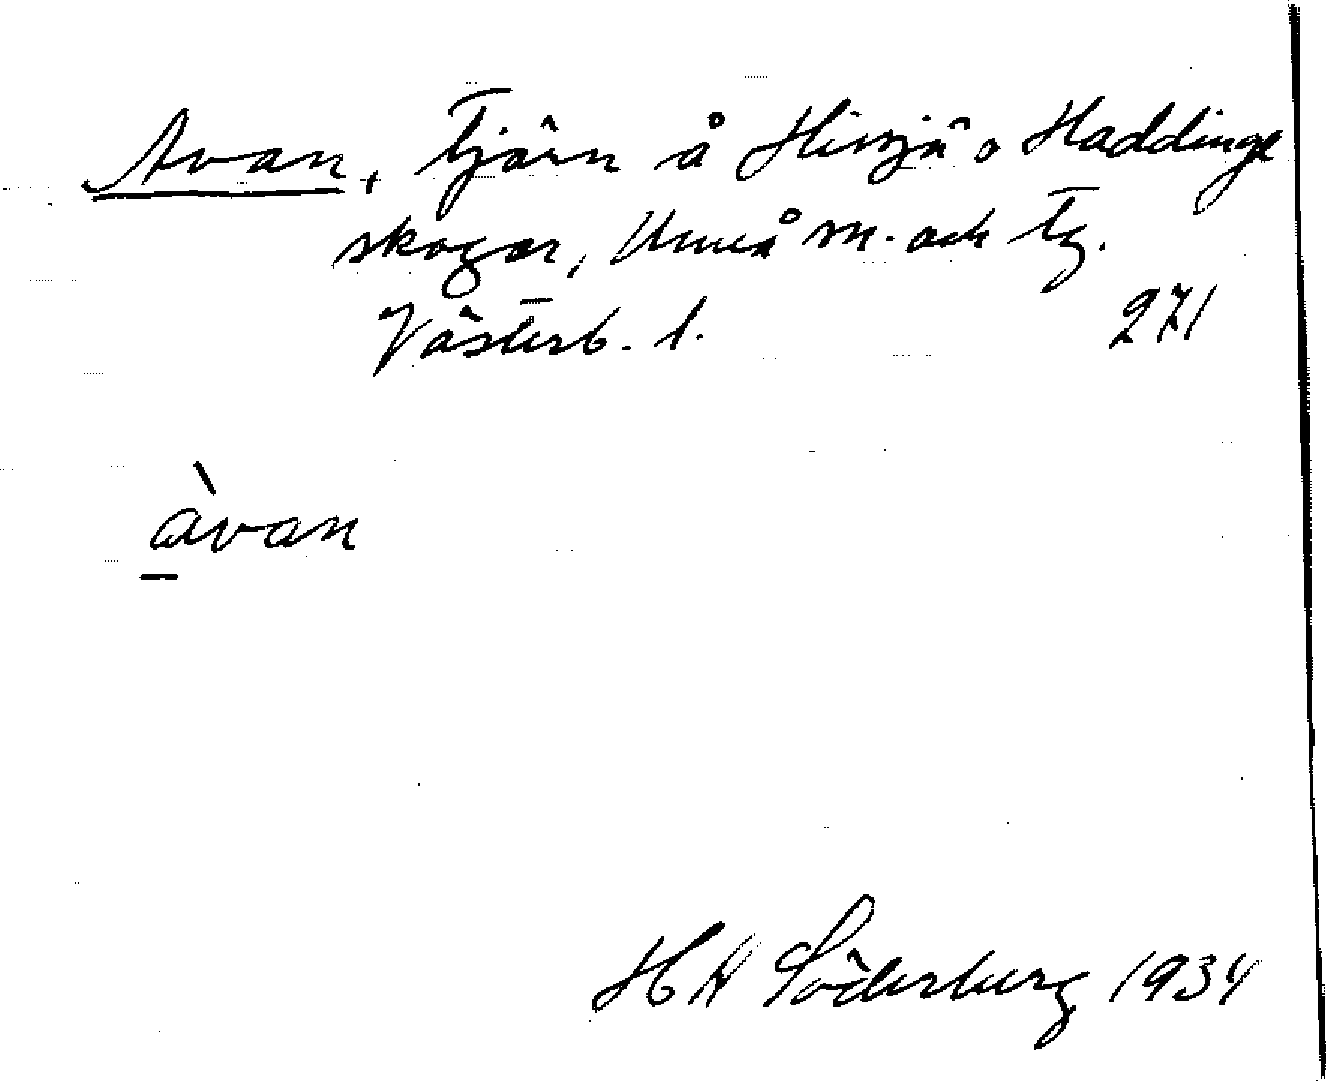 Avan, Tjärn å Hissjö o Haddinge
skogar, Umeå sn. och tg.
Västerb. l. 271
àvan
H A Söderberg 1934